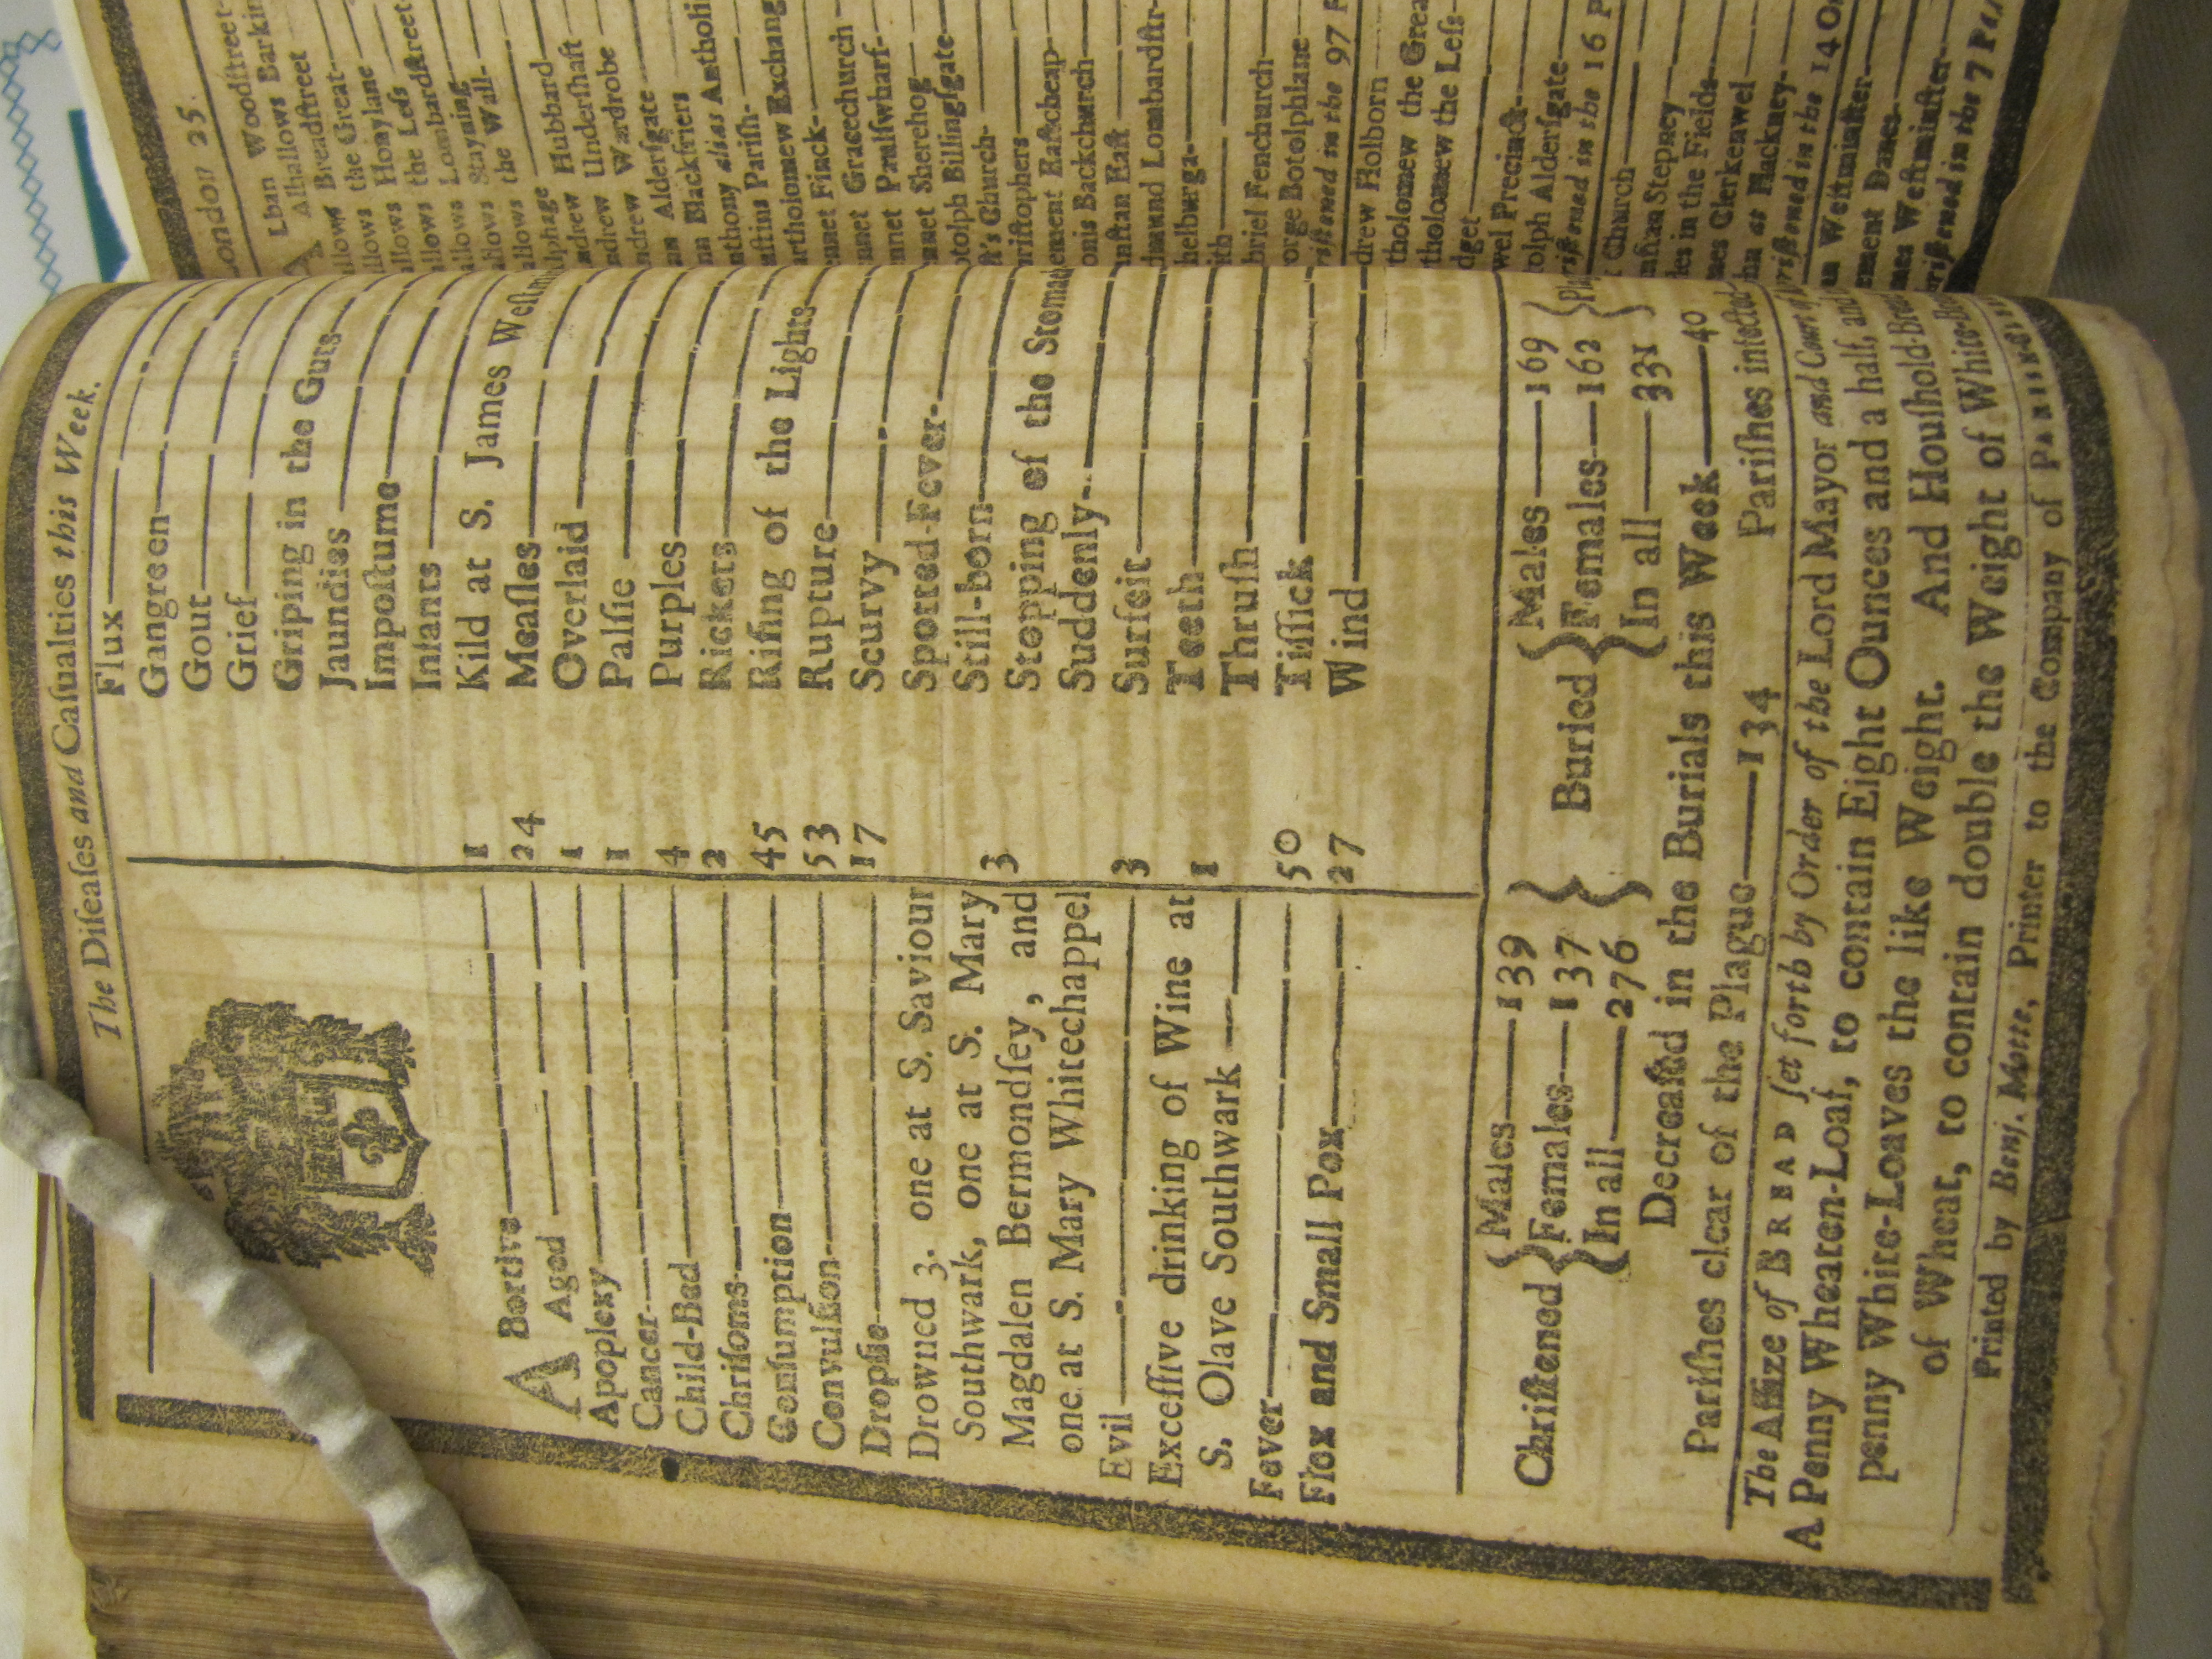 The Diſeaſes and Caſualties this Week.
ABortive 1
Aged 24
Apoplexy 1
Cancer 1
Child-Bed 4
Chriſoms 2
Conſumption 45
Convulſion 53
Dropſie 17
Drowned 3. one at S. Saviour
Southwark, one at S. Mary
Magdalen Bermondſey, and 3
one at S. Mary Whitechappel
Evil 3
Exceſſive drinking of Wine at
S. Olave Southwark 1
Fever 50
Flox and Small Pox 27
Flux
Gangreen
Gout
Grief
Griping in the Guts
Jaundies
Impoſtume
Infants
Kild at S. James Weſtm
Meaſles
Overlaid
Palſie
Purples
Rickets
Riſing of the Lights
Rupture
Scurvy
Spotted-Fever
Still-born
Stopping of the Stomac
Suddenly
Surfeit
Teeth
Thruſh
Tiſſick
Wind
Chriſtened { Males 139 Females 137 In all 276 }
Buried { Males 169 Females 162 In all 331 }
Decreaſed in the Burials this Week 40
Pariſhes clear of the Plague 134 Pariſhes infected
The Aſſize of BREAD ſet forth by Order of the Lord Mayor and Court of
A Penny Wheaten-Loaf, to contain Eight Ounces and a half, and
penny White-Loaves the like Weight. And Houſhold-Bre
of Wheat, to contain double the Weight of White-Br
Printed by Benj. Motte, Printer to the Company of
London 25.
Lban Woodſtreet
Alhallows Barkin
allows Breadſtreet
allows the Great
allows Honylane
allows the Leſs
allows Lombardſtreet
allows Stayning
allows the Wall
lphage
ndrew Hubbard
ndrew Underſhaft
ndrew Wardrobe
nn Alderſgate
nn Blackfriers
nthony alias Antholi
uſtins Pariſh
artholomew Exchang
ennet Finck
nnet Gracechurch
nnet Paulſwharf
nnet Sherehog
otolph Billingſgate
ſt's Church
riſtophers
ement Eaſtcheap
onis Backchurch
nſtan Eaſt
dmund Lombardſtr
helburga
ith
briel Fenchurch
orge Botolphlane
riſtened in the 97 P
drew Holborn
tholomew the Grea
tholomew the Leſs
dget
wel Precinct
tolph Alderſgate
riſtened in the 16 P
t Church
nſtan Stepney
les in the Fields
mes Clerkenwel
hn at Hackney
riſtened in the 14 O
n Weſtminſter
ement Danes
mes Weſtminſter
riſtened in the 7 Pa